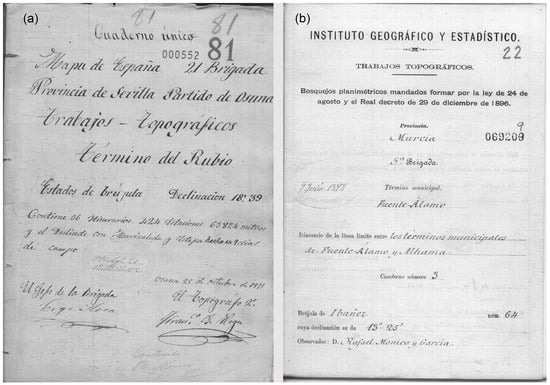 (a)
81
81
Cuaderno único
000552
81
Mapa de España 21 Brigada
Provincia de Sevilla Partido de Osuna
Trabajos - Topográficos
Término del Rubio
Estados de brújula Declinacion 18º 39
Contiene 36 itinerarios 424 estaciones metros
y el Deslinde con Marinaleda y Estepa hecho en 9 dias
de campo
Osuna 25 de octubre de
El Gefe de la Brigada
El Topógrafo 2º
Jorge
(b)
INSTITUTO GEOGRÁFICO Y ESTADÍSTICO.
22
TRABAJOS TOPOGRÁFICOS.
Bosquejos planimétricos mandados formar por la ley de 24 de
agosto y el Real decreto de 29 de diciembre de 1896.
Provincia.
9
Murcia
069209
5ª Brigada.
Julio 1898
Término municipal.
Fuente-Álamo
Itinerario de la línea límite entre los términos municipales
de Fuente-Álamo y Alhama.
Cuaderno número 3
Brújula de Ibáñez núm. 64
cuya declinación es de 15º-25'
Observador: D. Rafael Mónico y García